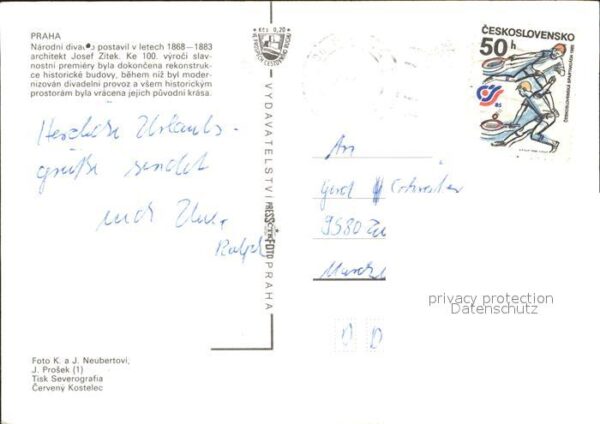 PRAHA
Národní divadlo postavil v letech 1868—1883
architekt Josef Zítek. Ke 100. výročí slav-
nostní premiéry byla dokončena rekonstruk-
ce historické budovy, během níž byl moder-
nizován divadelní provoz a všem historickým
prostorám byla vrácena jejich původní krása.
Kčs 0,20
VYDAVATELSTVÍ PRESSFOTO PRAHA
ČESKOSLOVENSKO
50 h
85
Herzliche Urlaubs-
grüße sendet
Ralph
An
Gerd
9580
privacy protection
Datenschutz
DD
Foto K. a J. Neubertovi,
J. Prošek (1)
Tisk Severografia
Červený Kostelec